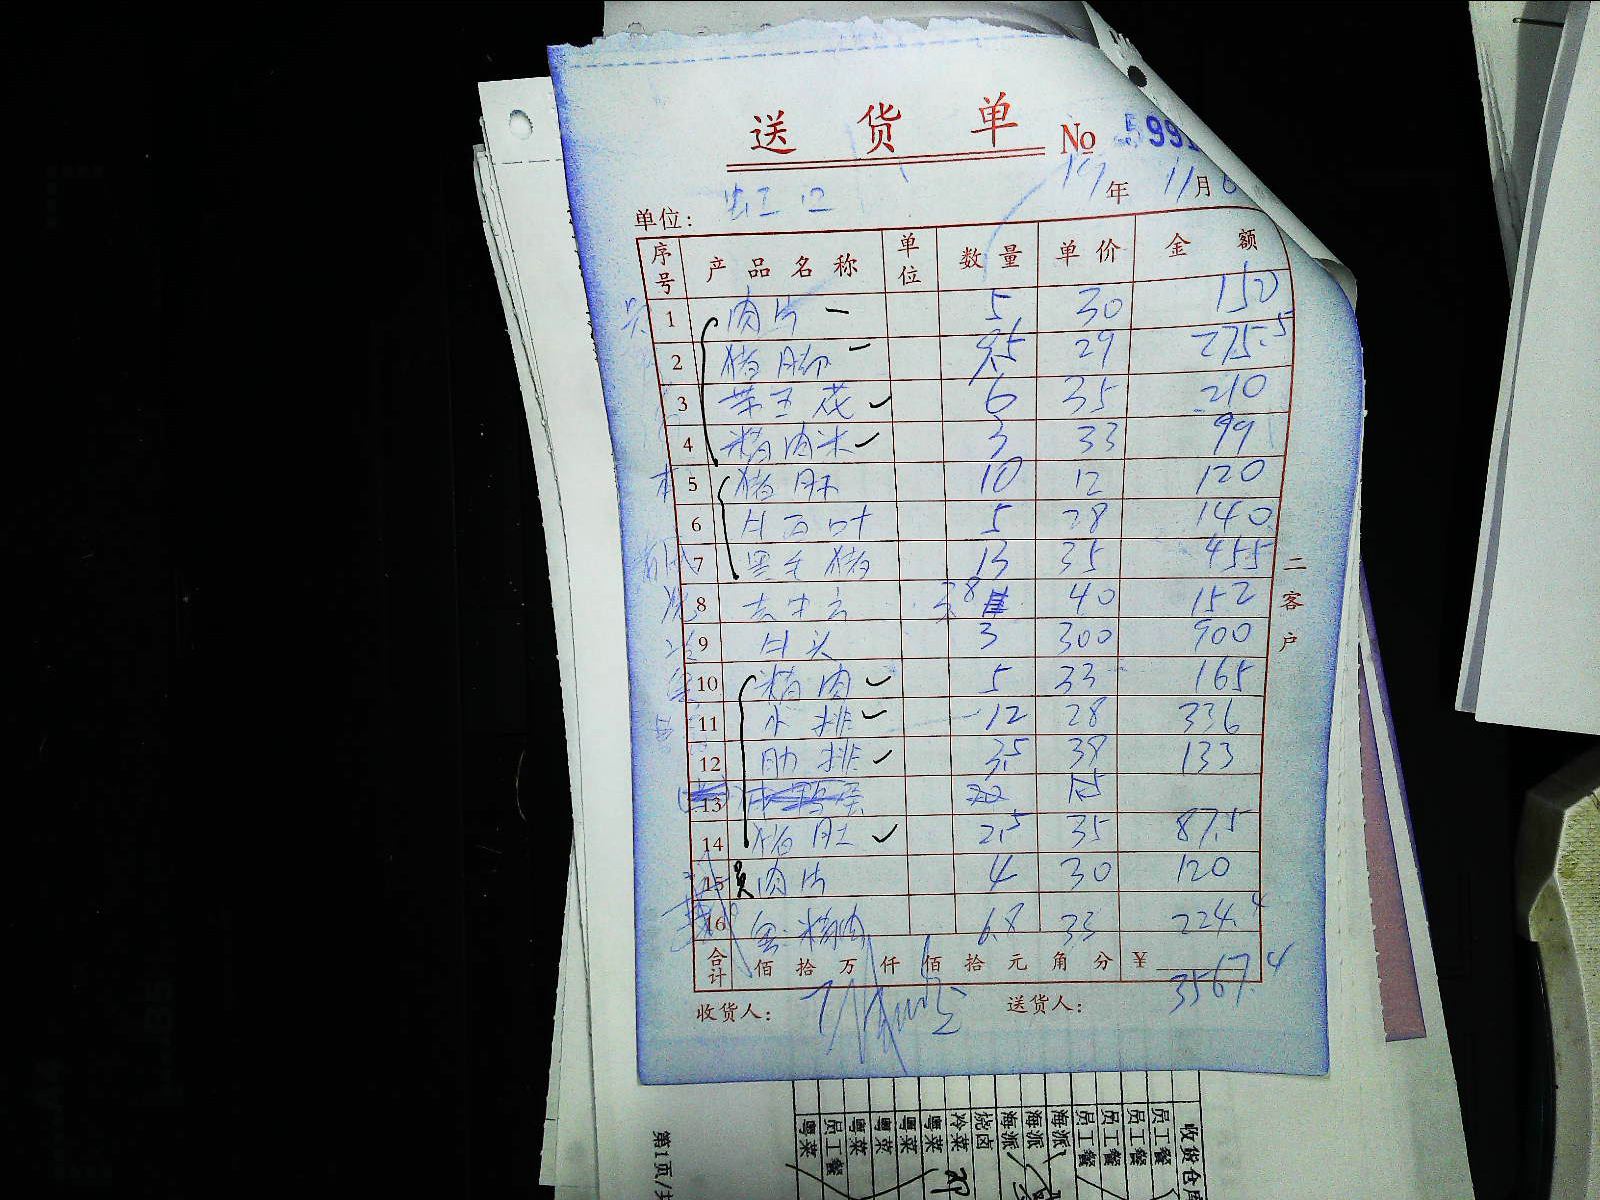 送货单
No 599
单位: 虹口 19年 11月
序号 产品名称 单位 数量 单价 金额
1 肉片 5 30 150
2 猪脚 9.5 29 275.5
3 6 35 210
4 精肉米 3 33 99
5 猪肝 10 12 120
6 牛百叶 5 28 140
7 黑毛猪 13 35 455
8 3.8 40 152
9 牛头 3 300 900
10 精肉 5 33 165
11 小排 12 28 336
12 肋排 3.5 38 133
13 15
14 猪肚 2.5 35 87.5
15 肉片 4 30 120
16 精肉 6.8 33 224.4
合计 佰 拾 万 仟 佰 拾 元 角 分 ¥ 3567.4
收货人: 送货人:
二客户
收货仓库
员工餐
员工餐
员工餐
员工餐
海派
海派
海派
烧卤
冷菜
粤菜
粤菜
粤菜
粤菜
员工餐
粤菜
第1页/共